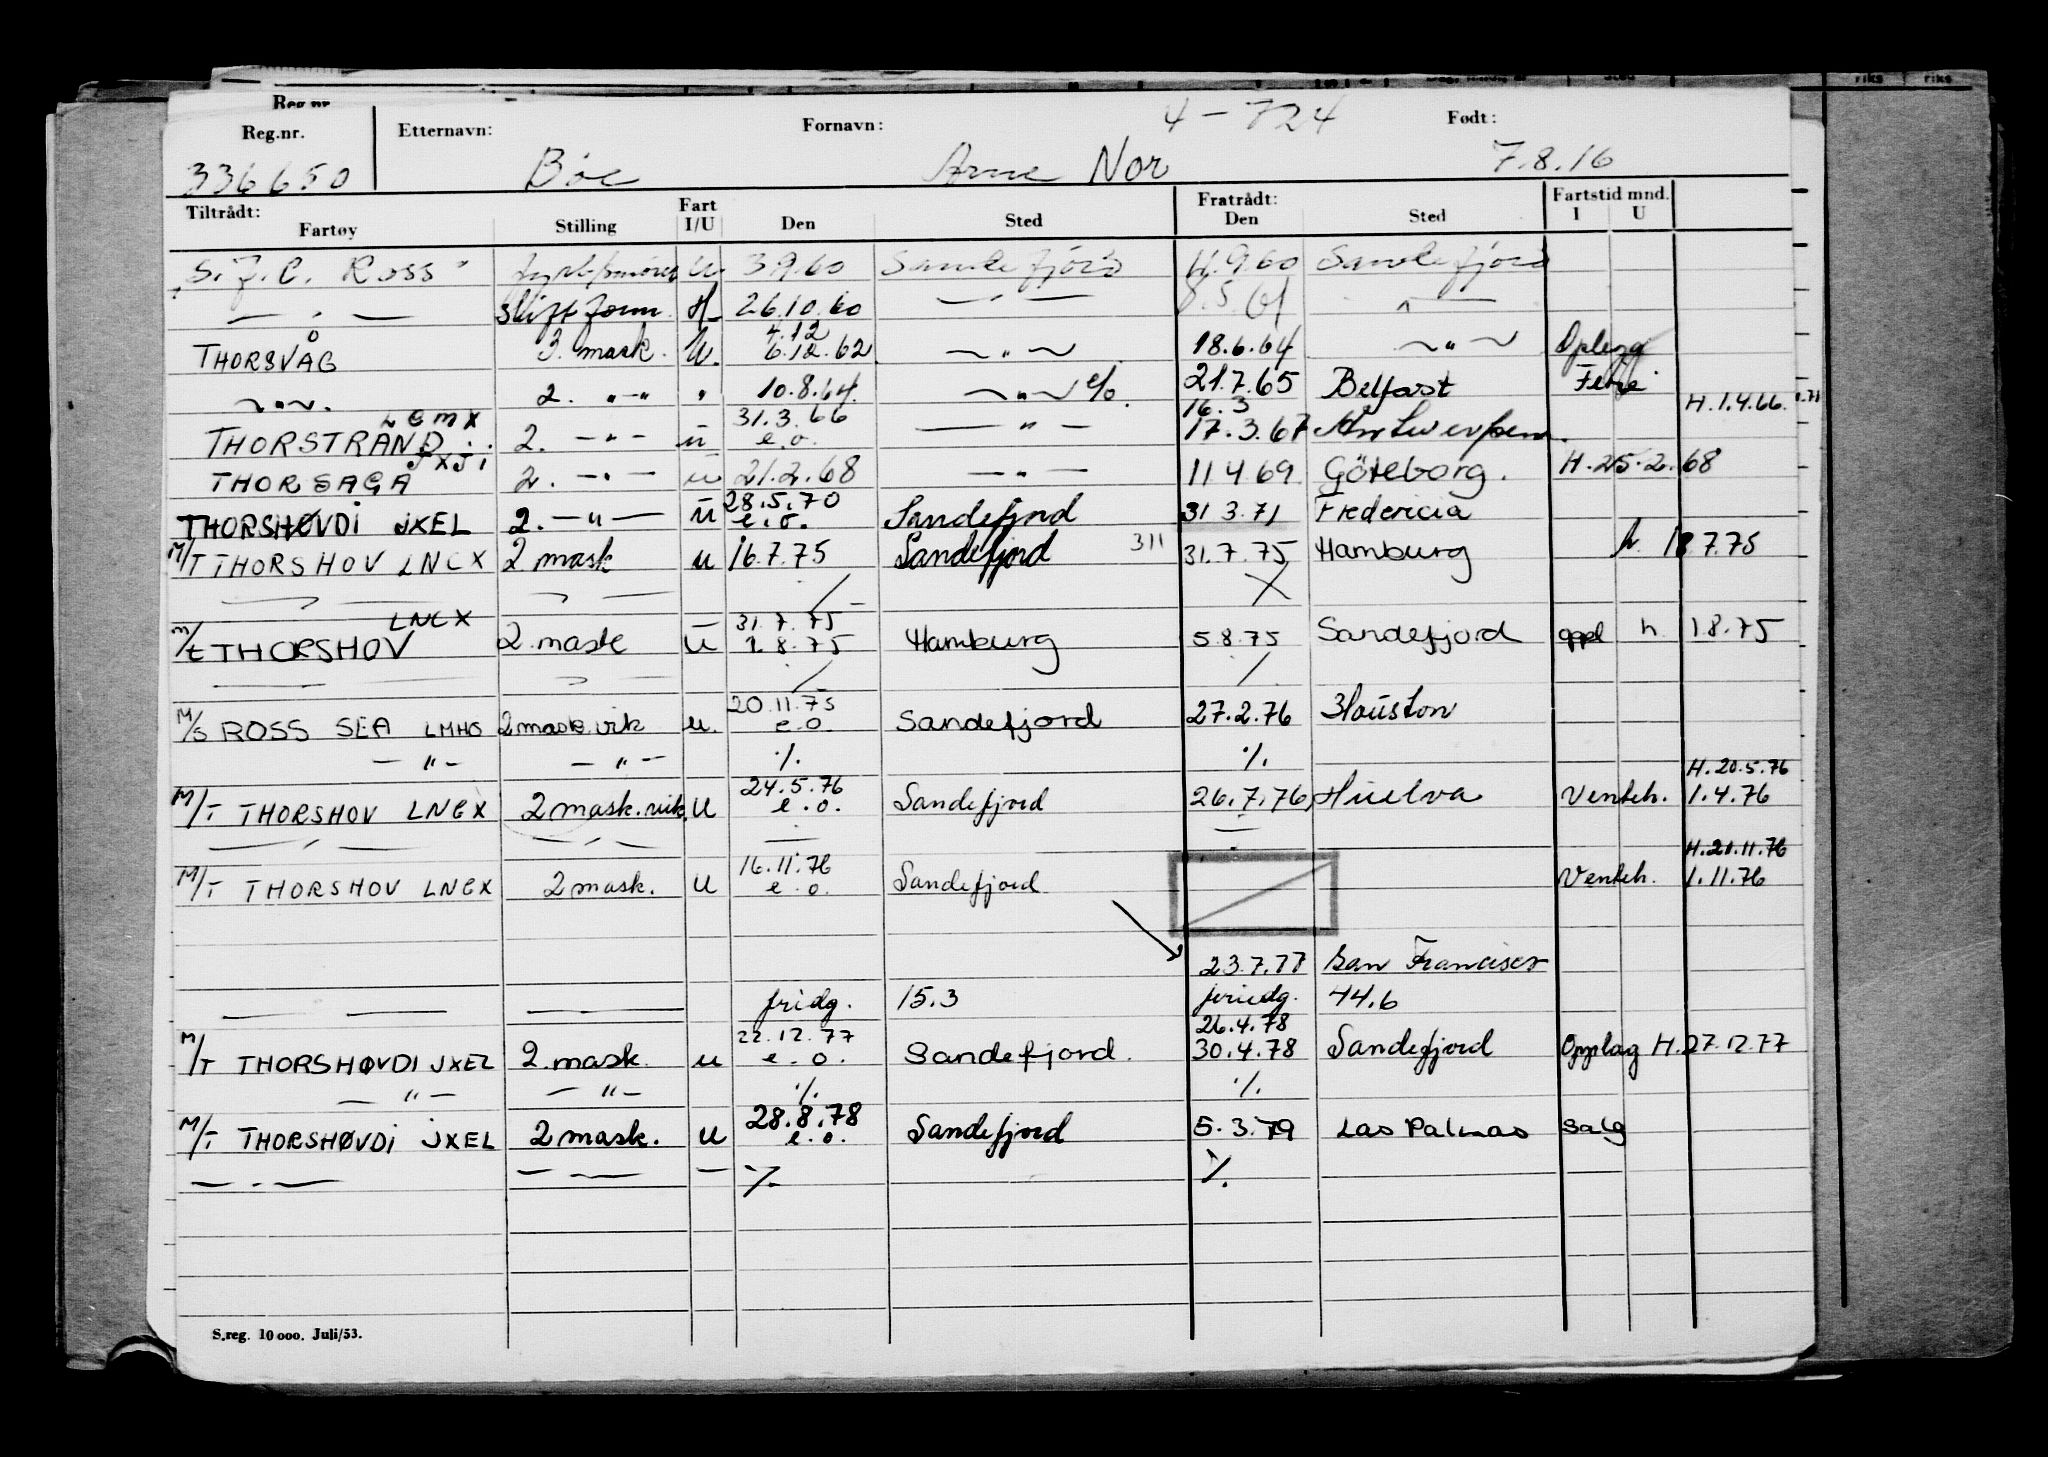 Reg.nr.
Reg.nr. Etternavn: Fornavn: 4-724 Født:
336650 Bøe Arne Nor 7.8.16
Tiltrådt: Fartøy Stilling Fart I/U Den Sted Fratrådt: Den Sted Fartstid mnd. I U
"S.J.C. Ross" U. 3.9.60 Sandefjord 4.9.60 Sandefjord
— " — skiftform. H 26.10.60 — " — 8.5.61 — " —
THORSVÅG 3. mask. U. 4.12 6.12.62 — " — 18.6.64 — " — Oplegg
— " — 2. — " — " 10.8.64 — " — e/o. 21.7.65 Belfast Ferie
THORSTRAND LEMX 2. — " — u 31.3.66 e.o. — " — 16.3 17.3.67 Antwerpen. H.1.4.66.
THORSAGA JXJI 2. — " — u 21.2.68 — " — 11 4 69 Göteborg. H.25.2.68
THORSHØVDI JXEL 2. — " — u 28.5.70 e.o. Sandefjord 31 3.71 Fredericia
M/T THORSHOV LNCX 2 mask u 16.7.75 Sandefjord 311 31.7.75 Hamburg h. 18 7.75
— " — — " — / — X
m/t THORSHOV LNCX 2. mask u 31.7.75 1.8.75 Hamburg 5.8.75 Sandefjord oppl h. 1 8.75
— " — — " — / — /
M/S ROSS SEA LMHG 2 mask. vik u. 20.11.75 e.o. Sandefjord 27.2.76 Houston
— " — — " — %. %.
M/T THORSHOV LNCX 2 mask. vik. u 24.5.76 e.o. Sandefjord 26.7.76 Huelva Venteh. H.20.5.76 1.4.76
— " — — " —
M/T THORSHOV LNCX 2 mask. u 16.11.76 e.o. Sandefjord Venteh. H.21.11.76 1.11.76
23.7.77 San Francisco
— — — fridg. 15.3 feriedg. 44.6
M/T THORSHØVDI JXEL 2. mask. u 22.12.77 e.o. Sandefjord. 26.4.78 30.4.78 Sandefjord Opplag H.27.12.77
— " — — " — %. %.
M/T THORSHØVDI JXEL 2 mask. u 28.8.78 e.o. Sandefjord 5.3.79 Las Palmas salg
— " — — — — %. %.
S.reg. 10 000. Juli/53.